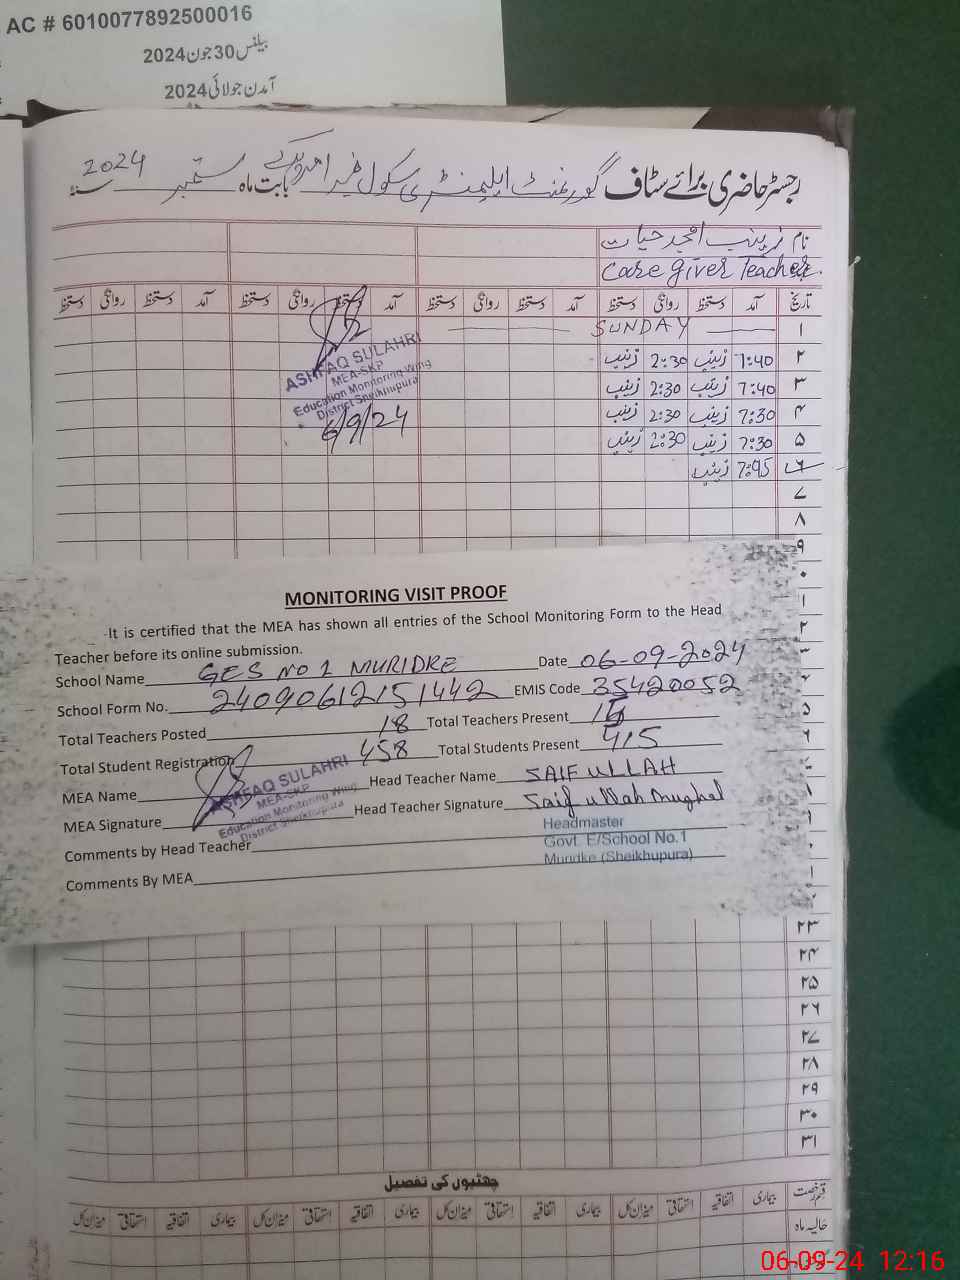 AC # 6010077892500016
بیلنس 30 جون 2024
آمدن جولائی 2024
رجسٹر حاضری برائے سٹاف گورنمنٹ ایلیمنٹری سکول نمبر ا مریدکے بابت ماہ ستمبر سنہ 2024
نام زینب امجد حیات
Care giver Teacher
تاریخ آمد دستخط روانگی دستخط آمد دستخط روانگی دستخط آمد دستخط روانگی دستخط آمد دستخط روانگی دستخط
۱ SUNDAY
۲ 7:40 زینب 2:30 زینب
۳ 7:40 زینب 2:30 زینب
۴ 7:30 زینب 2:30 زینب
۵ 7:30 زینب 2:30 زینب
۶ 7:45 زینب
ASHFAQ SULAHRI
MEA-SKP
Education Monitoring Wing
District Sheikhupura
6/9/24
۷
۸
۹
MONITORING VISIT PROOF
It is certified that the MEA has shown all entries of the School Monitoring Form to the Head
Teacher before its online submission.
School Name GES NO 1 MURIDKE Date 06-09-2024
School Form No. 24090612151442 EMIS Code 35420052
Total Teachers Posted 18 Total Teachers Present
Total Student Registration 458 Total Students Present 415
MEA Name ASHFAQ SULAHRI Head Teacher Name SAIF ULLAH
MEA-SKP
Education Monitoring Wing
District Sheikhupura
MEA Signature Head Teacher Signature Saif ullah Mughal
Headmaster
Govt. E/School No.1
Muridke (Sheikhupura)
Comments by Head Teacher
Comments By MEA
۲۳
۲۴
۲۵
۲۶
۲۷
۲۸
۲۹
۳۰
۳۱
چھٹیوں کی تفصیل
قسم رخصت بیماری اتفاقیہ استحقاقی میزان کل بیماری اتفاقیہ استحقاقی میزان کل بیماری اتفاقیہ استحقاقی میزان کل بیماری اتفاقیہ استحقاقی میزان کل
حالیہ ماہ
06-09-24 12:16